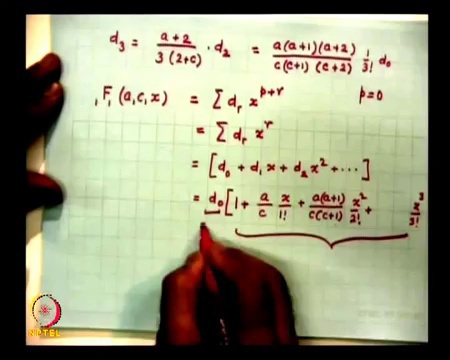 d₃ = (a+2)/(3(2+c)) · d₂ = (a(a+1)(a+2))/(c(c+1)(c+2)) 1/3! d₀
₁F₁(a,c,x) = ∑ dᵣ x^(p+r) p=0
= ∑ dᵣ x^r
= [d₀ + d₁x + d₂x² + ⋯]
= d₀[1 + a/c x/1! + (a(a+1))/(c(c+1)) x²/2! + x³/3!
NPTEL